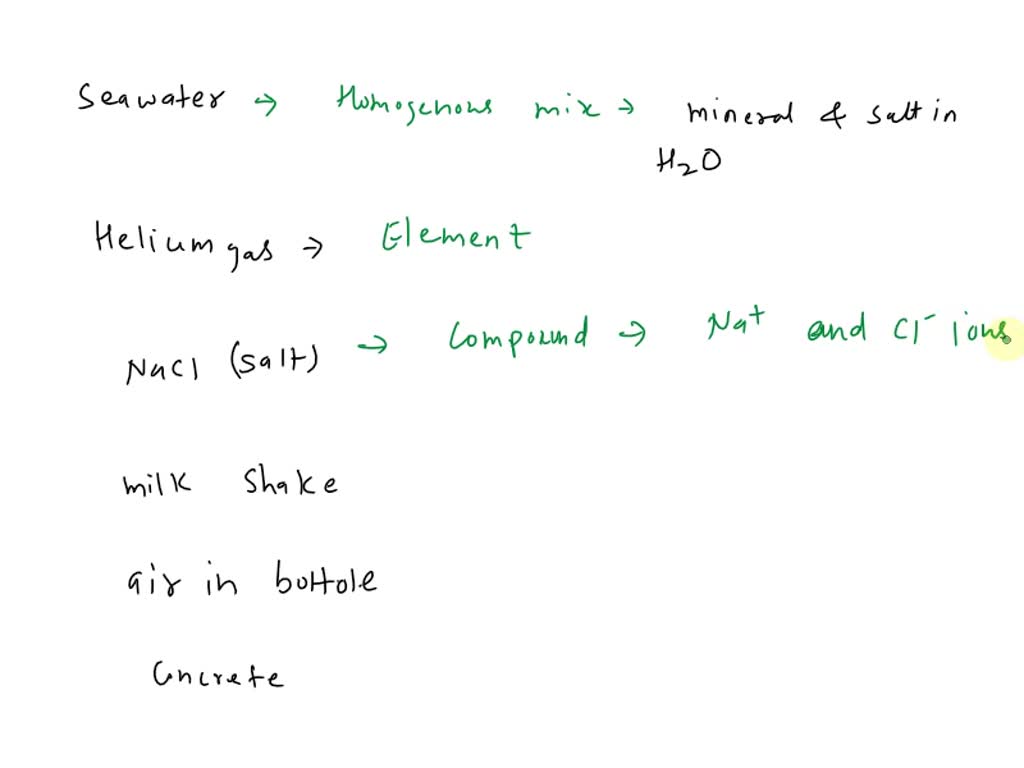 Seawater → Homogenous mix → mineral & salt in
H₂O
Helium gas → Element
NaCl (salt) → Compound → Na⁺ and Cl⁻ ions
milk shake
air in bottole
Concrete